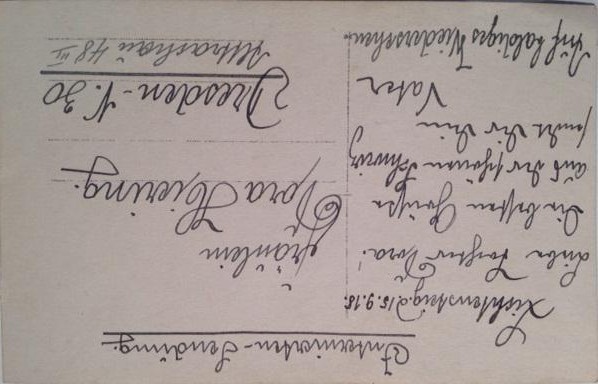 Internierten-Sendung.
Lichtensteig d. 15.9.18.
Liebe Tochter Dora!
Die besten Grüße
aus der schönen Schweiz
sendet Dir Dein
Vater
Auf baldiges Wiedersehen.
Fräulein
Dora Hiering.
Dresden-N. 30
Altrachau 48 III